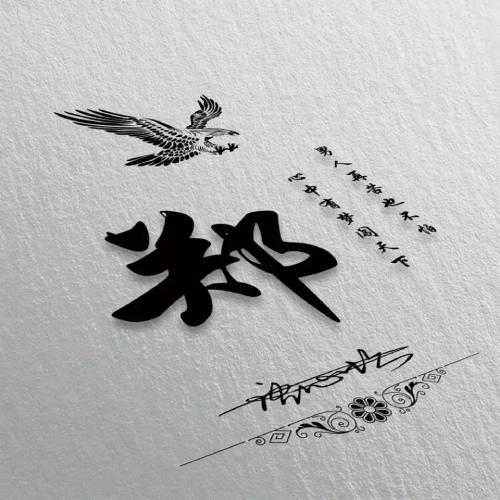 郑
男人再苦也不怕
心中有梦闯天下